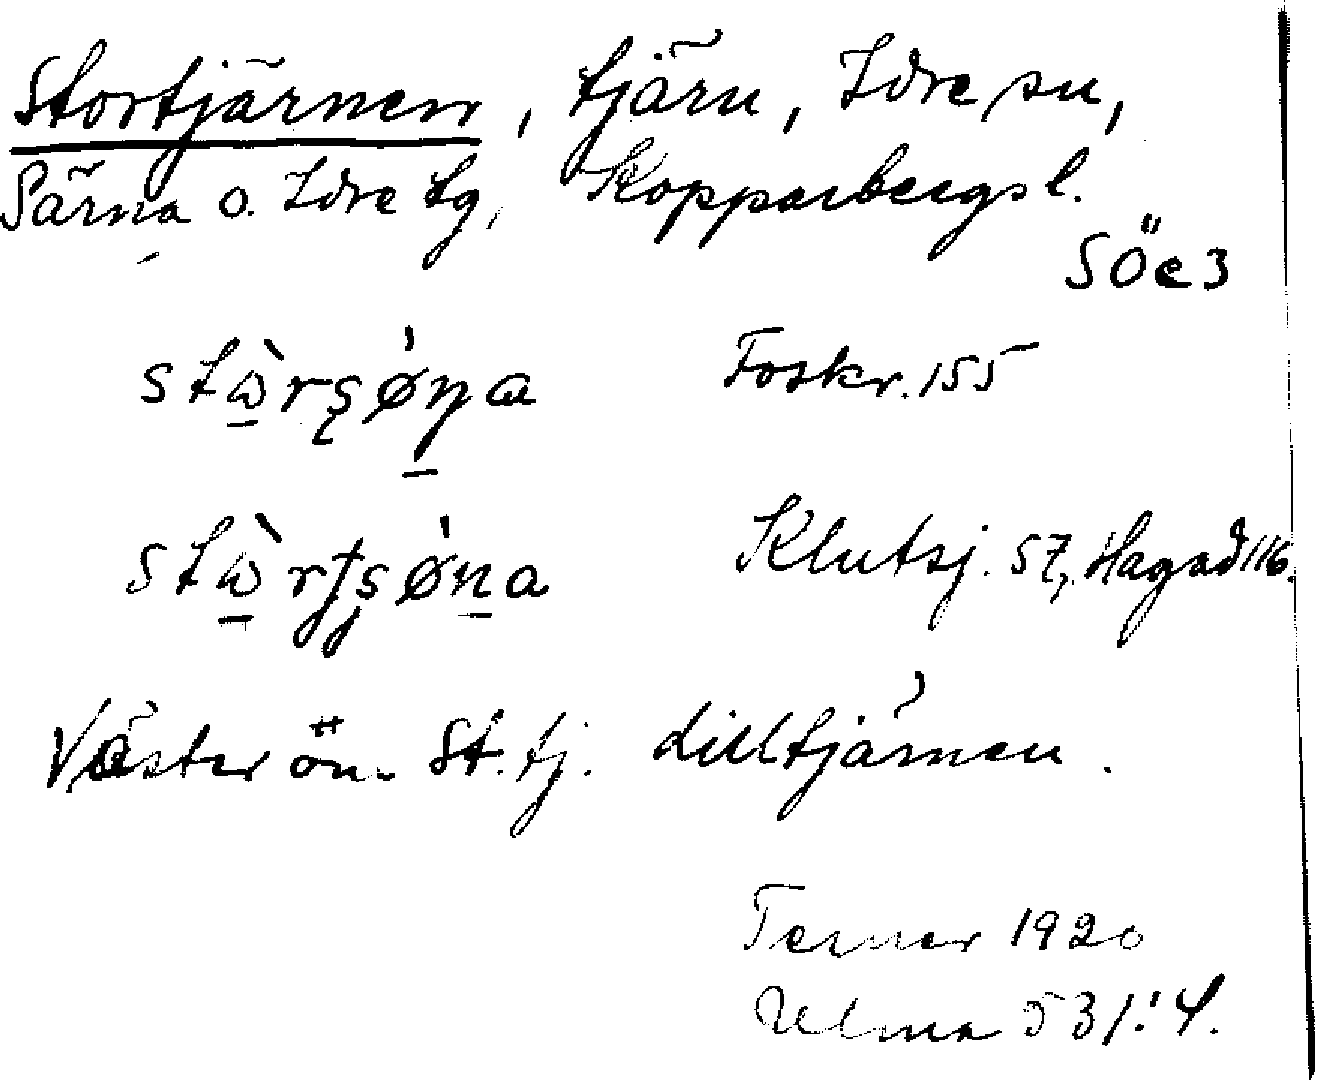 Stortjärnen, tjärn, Idre sn,
Särna o. Idre tg, Kopparbergs l.
SÖe3
stὼ̲rʂø̍ṉa Foskr. 155
stὼ̲rtʂø̍ṉa Klutsj. 57, Hagaå 116.
Väster om St.tj. Lilltjärnen.
Terner 1920
Ulma 531:4.